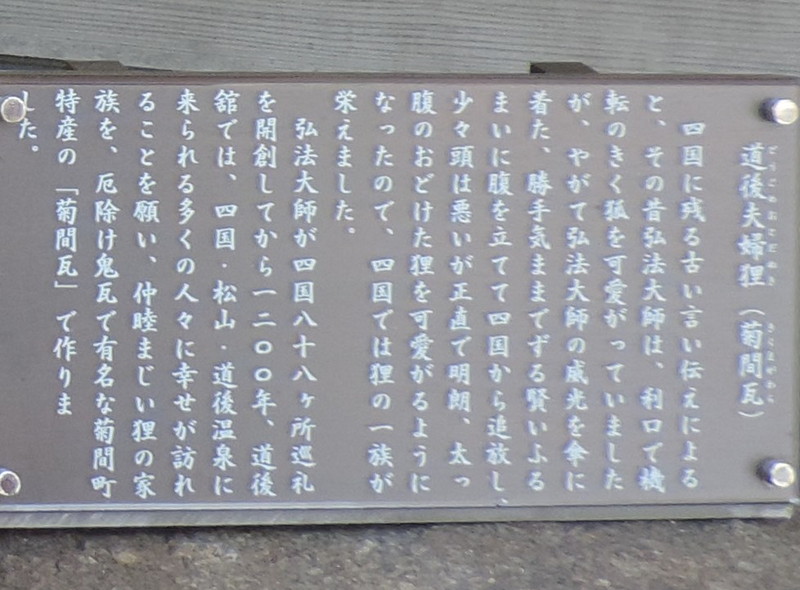 道後夫婦狸（菊間瓦）
四国に残る古い言い伝えによる
と、その昔弘法大師は、利口で機
転のきく狐を可愛がっていました
が、やがて弘法大師の威光を傘に
着た、勝手気ままでずる賢いふる
まいに腹を立てて四国から追放し、
少々頭は悪いが正直で明朗、太っ
腹のおどけた狸を可愛がるように
なったので、四国では狸の一族が
栄えました。
弘法大師が四国八十八ヶ所巡礼
を開創してから一二〇〇年、道後
舘では、四国・松山・道後温泉に
来られる多くの人々に幸せが訪れ
ることを願い、仲睦まじい狸の家
族を、厄除け鬼瓦で有名な菊間町
特産の「菊間瓦」で作りま
した。